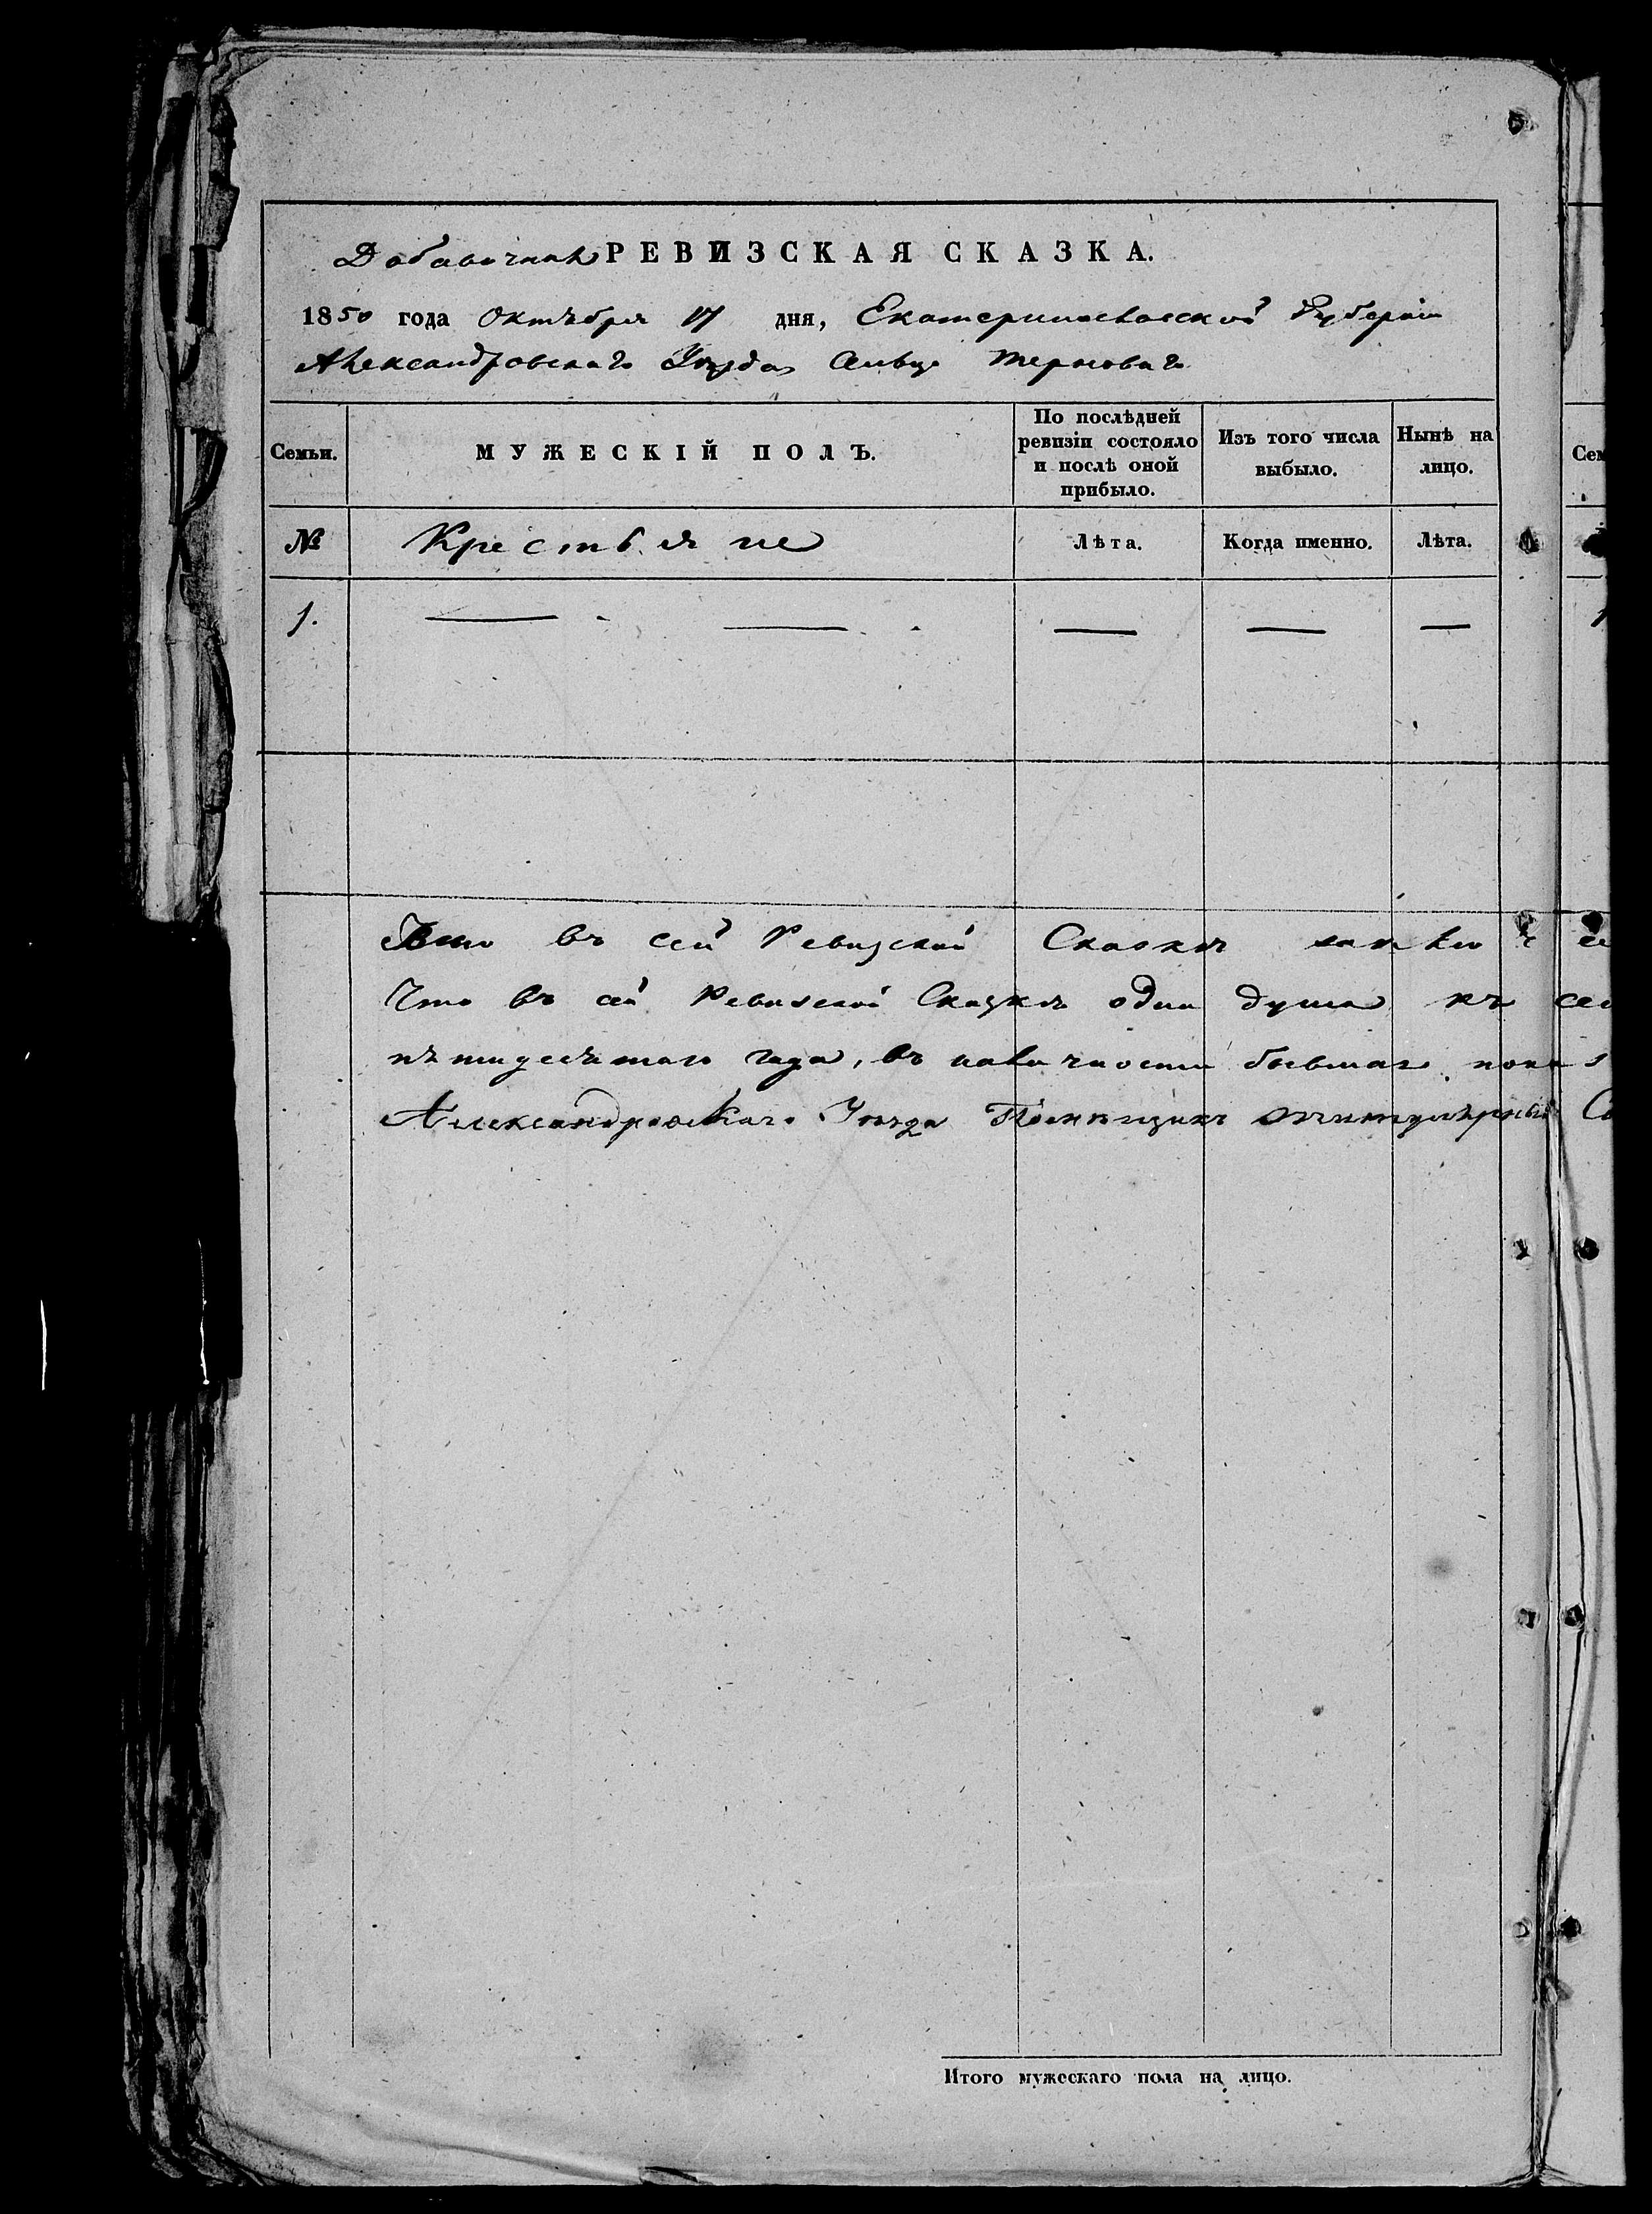 Добавочная РЕВИЗСКАЯ СКАЗКА.
1850 года Октября 17 дня, Екатеринославской Губерніи
Александровскаго Уѣзда Сельца Терноваго
Семьи.
МУЖЕСКІЙ ПОЛЪ.
По послѣдней ревизіи состояло и послѣ оной прибыло.
Изъ того числа выбыло.
Нынѣ на лицо.
Сем
№ Крестьяне Лѣта. Когда именно. Лѣта.
1. — — — — —
въ сей Ревизской Сказкѣ
Что въ сей Ревизской Сказкѣ одна душа къ
пятидесятаго года, въ наличности бывшая пока
Александровскаго Уѣзда Помѣщикъ Со
Итого мужескаго пола на лицо.